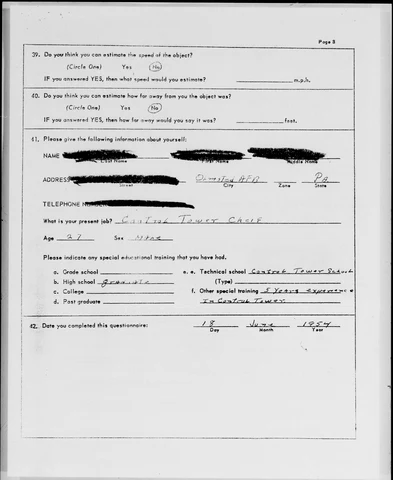 Page 8
39. Do you think you can estimate the speed of the object?
(Circle One) Yes No
IF you answered YES, then what speed would you estimate? m.p.h.
40. Do you think you can estimate how far away from you the object was?
(Circle One) Yes No
IF you answered YES, then how far away would you say it was? feet.
41. Please give the following information about yourself:
NAME
Last Name First Name Middle Name
ADDRESS Olmsted AFB PA
Street City Zone State
TELEPHONE NUMBER
What is your present job? Control Tower Chief
Age 27 Sex Male
Please indicate any special educational training that you have had.
a. Grade school e. Technical school Control Tower School
b. High school graduate (Type)
c. College f. Other special training 5 Years experience
d. Post graduate In Control Tower
42. Date you completed this questionnaire: 18 June 1954
Day Month Year